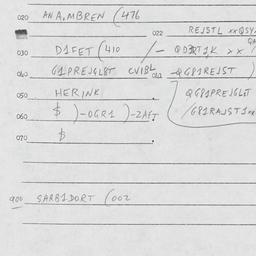 020 ANA.MBREN (476
022 REJSTL xxQSY
030 D1FET (410
040 G1PREJGL8T CVIBL
-QG81REJST )
050 HERINK
QG81PREJGLST
060 $ )-OGR1 )-2AJT
/G81RAJST1
070 $
900 SARB1DORT (002